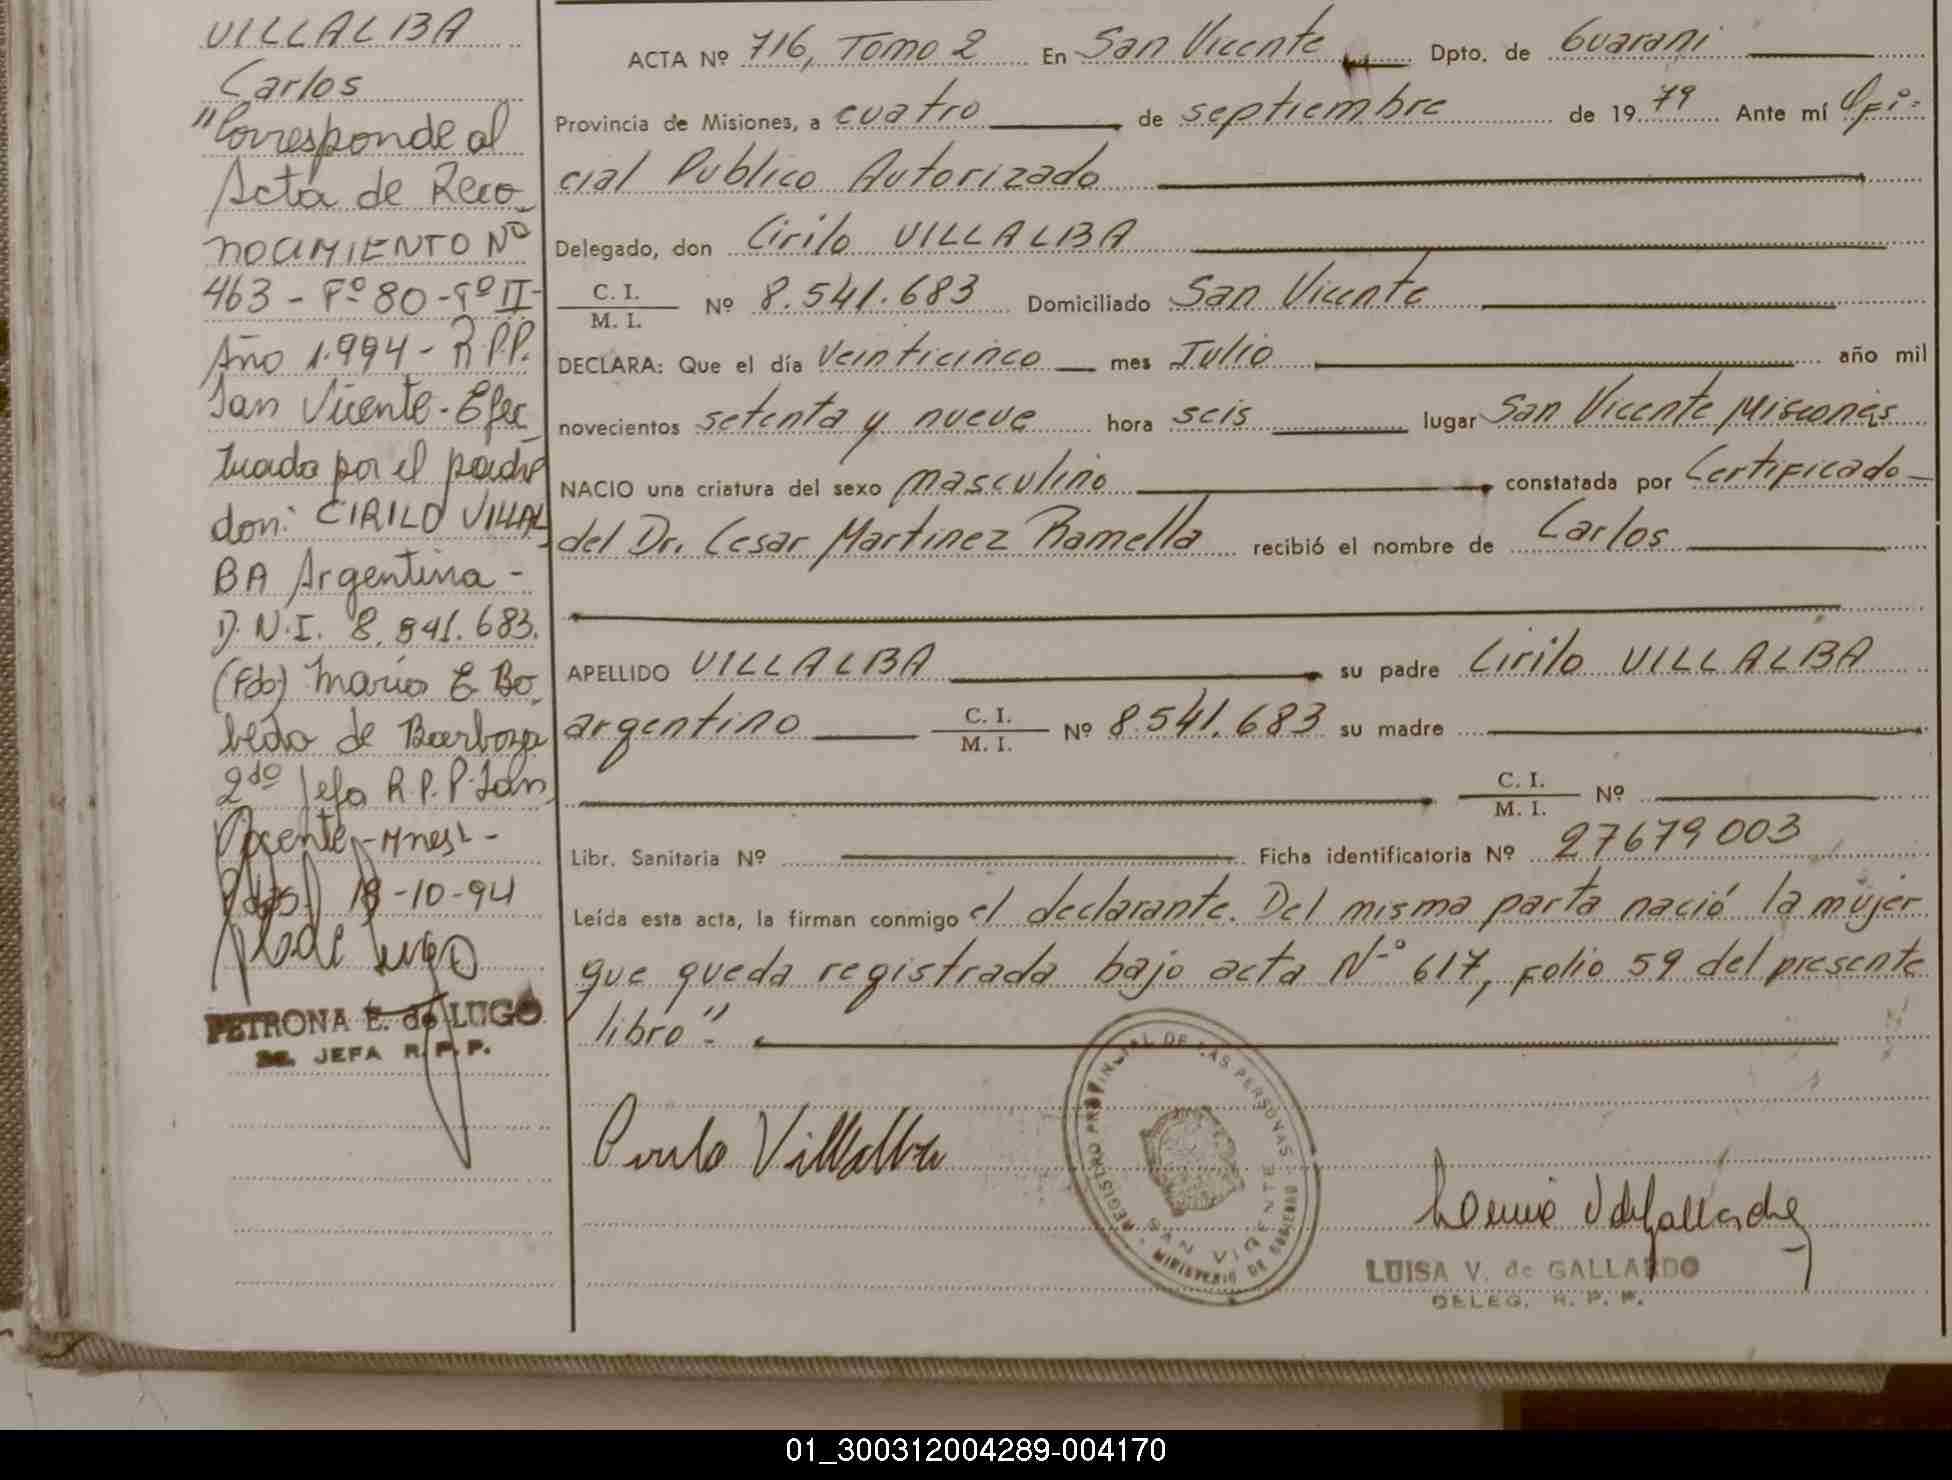 VILLALBA
Carlos
"Corresponde al
Acta de Reco-
nocimiento Nº
463 - Fº 80 - Tº II -
Año 1.994 - R.P.P.
San Vicente - Efec-
tuado por el padre
don: CIRILO VILLAL-
BA Argentina -
D.N.I. 8.541.683.
(Fdo) Mario E. Bo-
beda de Barboza
2do Jefa R.P.P. San
Vicente - Mnes. -
Pdas. 18-10-94
PETRONA E. de LUGO
2a. JEFA R.P.P.
ACTA Nº 716, Tomo 2 En San Vicente Dpto. de Guarani
Provincia de Misiones, a cuatro de septiembre de 1979 Ante mí Ofi-
cial Publico Autorizado
Delegado, don Cirilo VILLALBA
C. I.
M. I. Nº 8.541.683 Domiciliado San Vicente
DECLARA: Que el día veinticinco mes Julio año mil
novecientos setenta y nueve hora seis lugar San Vicente Misiones
NACIO una criatura del sexo masculino constatada por Certificado
del Dr. Cesar Martinez Ramella recibió el nombre de Carlos
APELLIDO VILLALBA su padre Cirilo VILLALBA
argentino C. I.
M. I. Nº 8.541.683 su madre
C. I.
M. I. Nº
Libr. Sanitaria Nº Ficha identificatoria Nº 27679003
Leída esta acta, la firman conmigo el declarante. Del misma parta nació la mujer
que queda registrada bajo acta Nº 617, folio 59 del presente
libro".
Cirilo Villalba
REGISTRO PROVINCIAL DE LAS PERSONAS
SAN VICENTE
MINISTERIO DE GOBIERNO
LUISA V. de GALLARDO
DELEG. R. P. P.
01_300312004289-004170